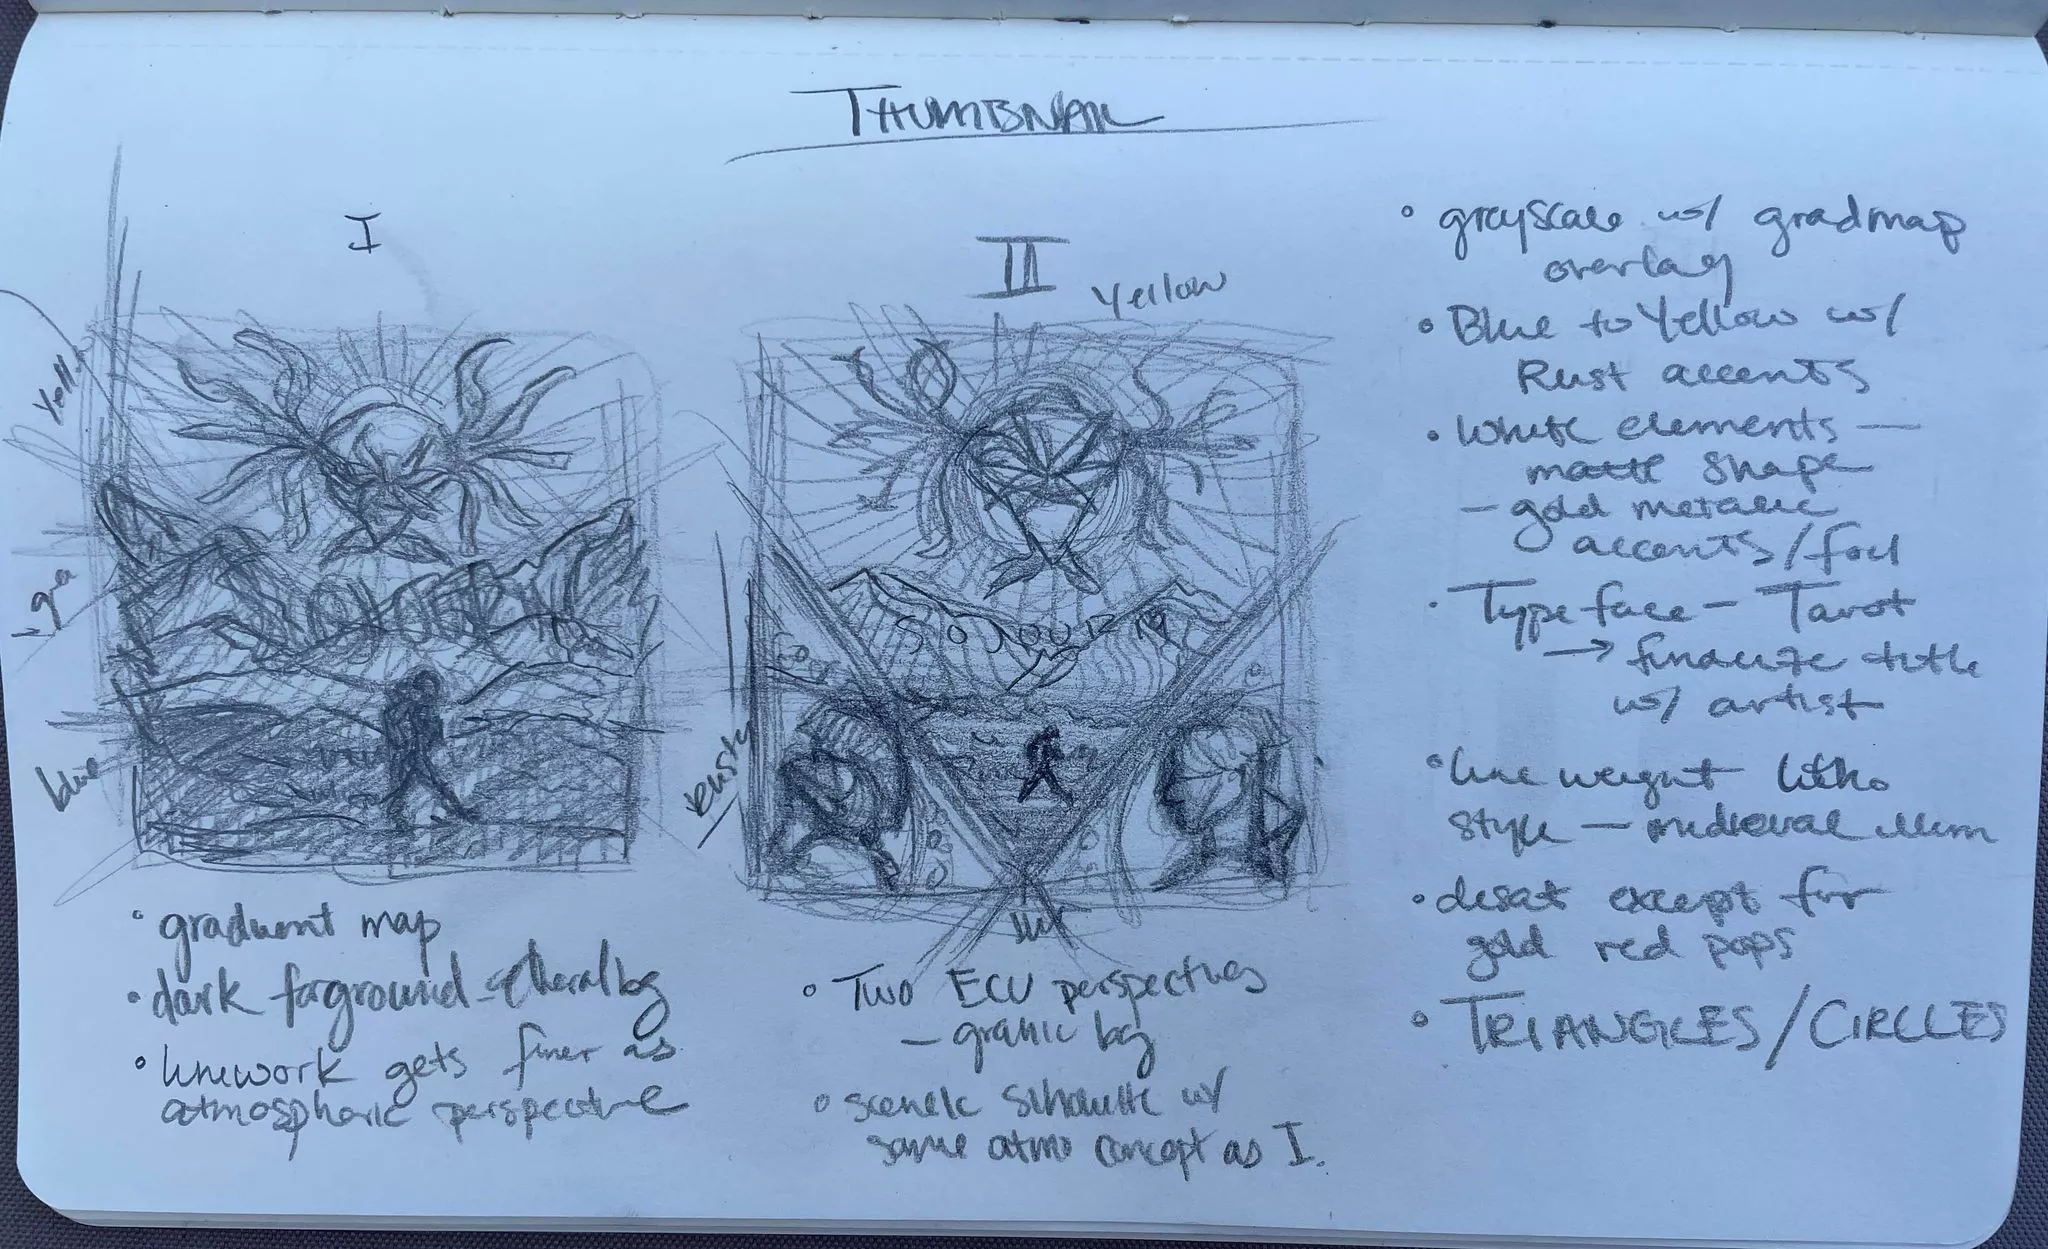 THUMBNAIL
I
II
Yellow
Yell
blue
Rusty
SOJOURN
• gradient map
• dark forground - etheral bg
• linework gets finer as
atmospheric perspective
• Two ECU perspectives
- grahic bg
• scenic silhouette w/
same atmo concept as I.
• grayscale w/ gradmap
overlay
• Blue to Yellow w/
Rust accents
• White elements —
matte shape
- gold metalic
accents/foil
• Typeface - Tarot
→ finalize title
w/ artist
• line weight litho
style - medieval illum
• desat except for
gold red pops
• TRIANGLES/CIRCLES